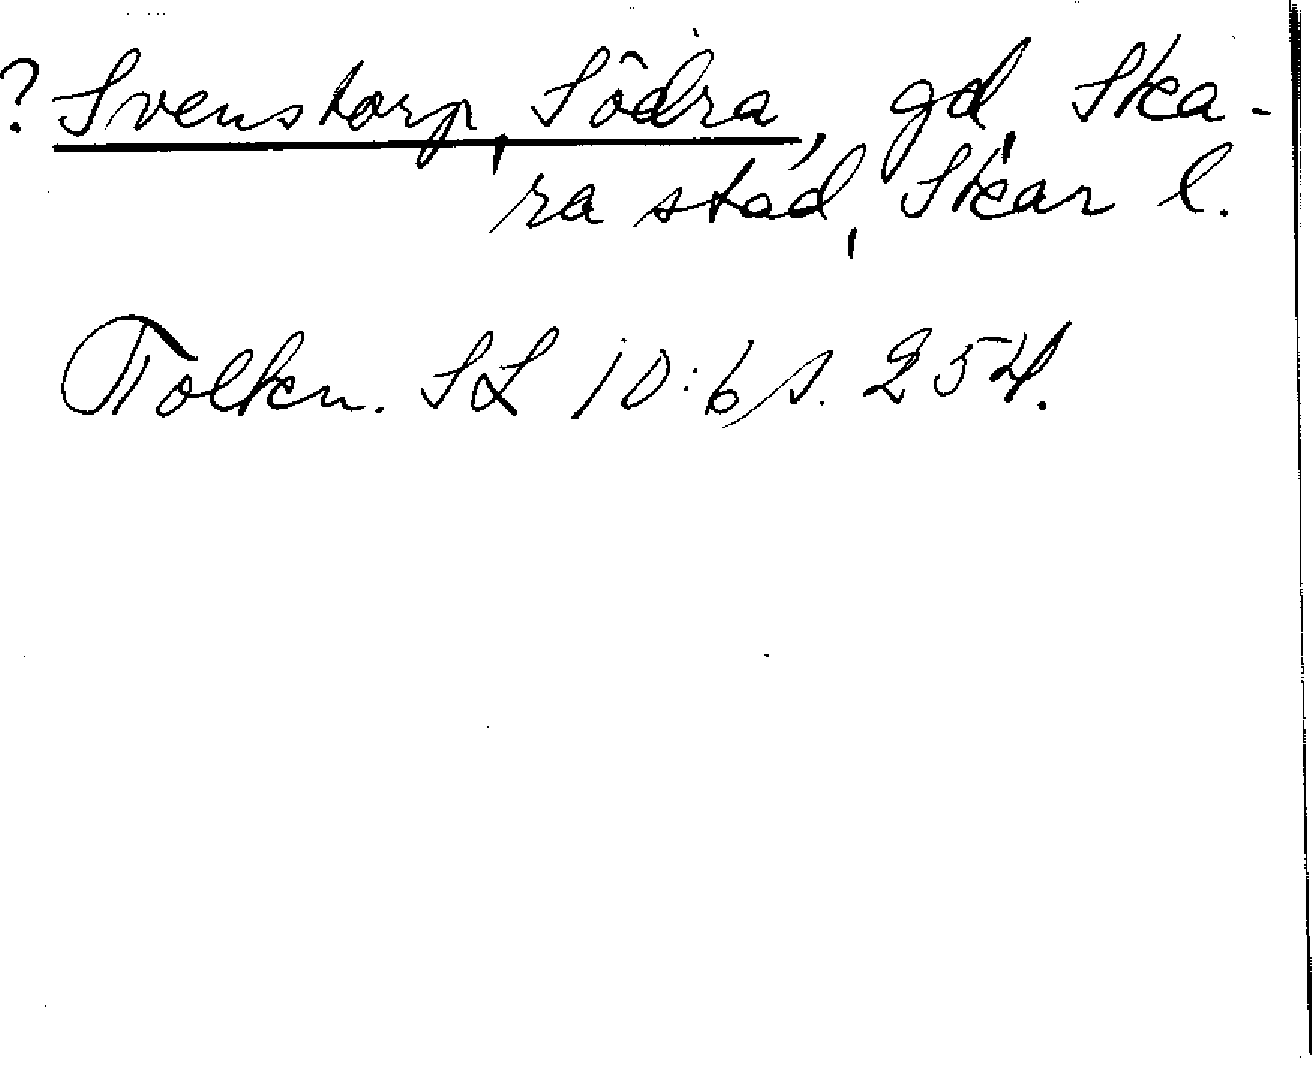 ? Svenstorp, Södra, gd, Ska-
ra stad, Skar l.
Tolkn. SL 10:6 s. 254.